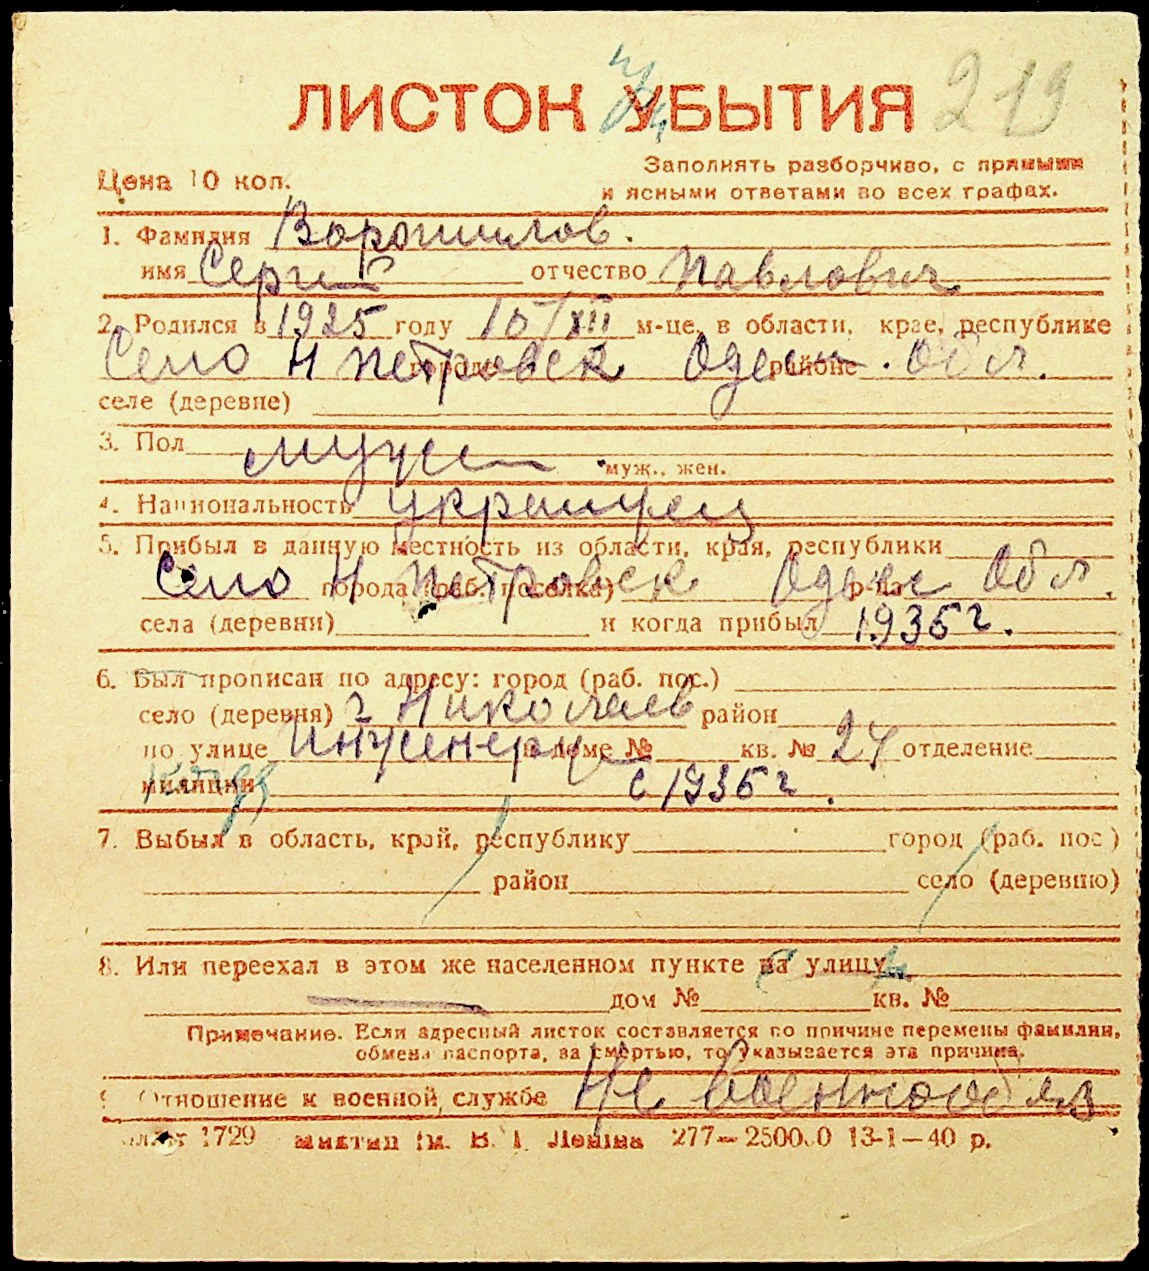 ЛИСТОК УБЫТИЯ 219
Цена 10 коп.
Заполнять разборчиво, с прямыми
и ясными ответами во всех графах.
1. Фамилия Ворошилов.
имя Сергей отчество Павлович
2. Родился в 1925 году 15/XII м-це, в области, крае, республике
Село Н Петровск Одесск. Обл.
городе районе
селе (деревне)
3. Пол мужск
муж., жен.
4. Национальность украинец
5. Прибыл в данную местность из области, края, республики
Село Н Петровск Одесс Обл.
города (раб. поселка) р-на
села (деревни) и когда прибыл 1936 г.
6. Был прописан по адресу: город (раб. пос.)
село (деревня) г Николаев район
по улице Инженерн в доме № кв. № 24 отделение
милиции с 1936 г.
7. Выбыл в область, край, республику город (раб. пос)
район село (деревню)
8. Или переехал в этом же населенном пункте на улицу
дом № кв. №
Примечание. Если адресный листок составляется по причине перемены фамилии,
обмена паспорта, за смертью, то указывается эта причина.
9. Отношение к военной службе Не военнообяз
1729 им. В. І. Леніна 277—250000 13-1—40 р.